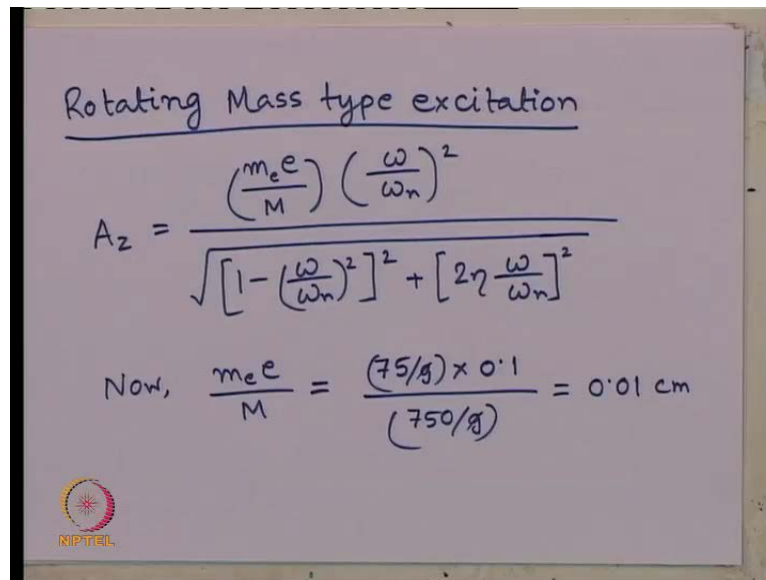 Rotating Mass type excitation
A_z = \frac{\left(\frac{m_e e}{M}\right)\left(\frac{\omega}{\omega_n}\right)^2}{\sqrt{\left[1-\left(\frac{\omega}{\omega_n}\right)^2\right]^2+\left[2\eta\frac{\omega}{\omega_n}\right]^2}}
Now, \frac{m_e e}{M} = \frac{(75/g) \times 0.1}{(750/g)} = 0.01 cm
NPTEL